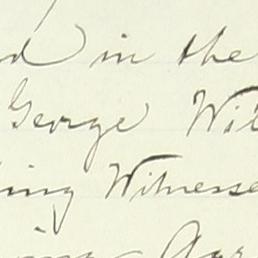 in the
George Wil
ing Witnesse